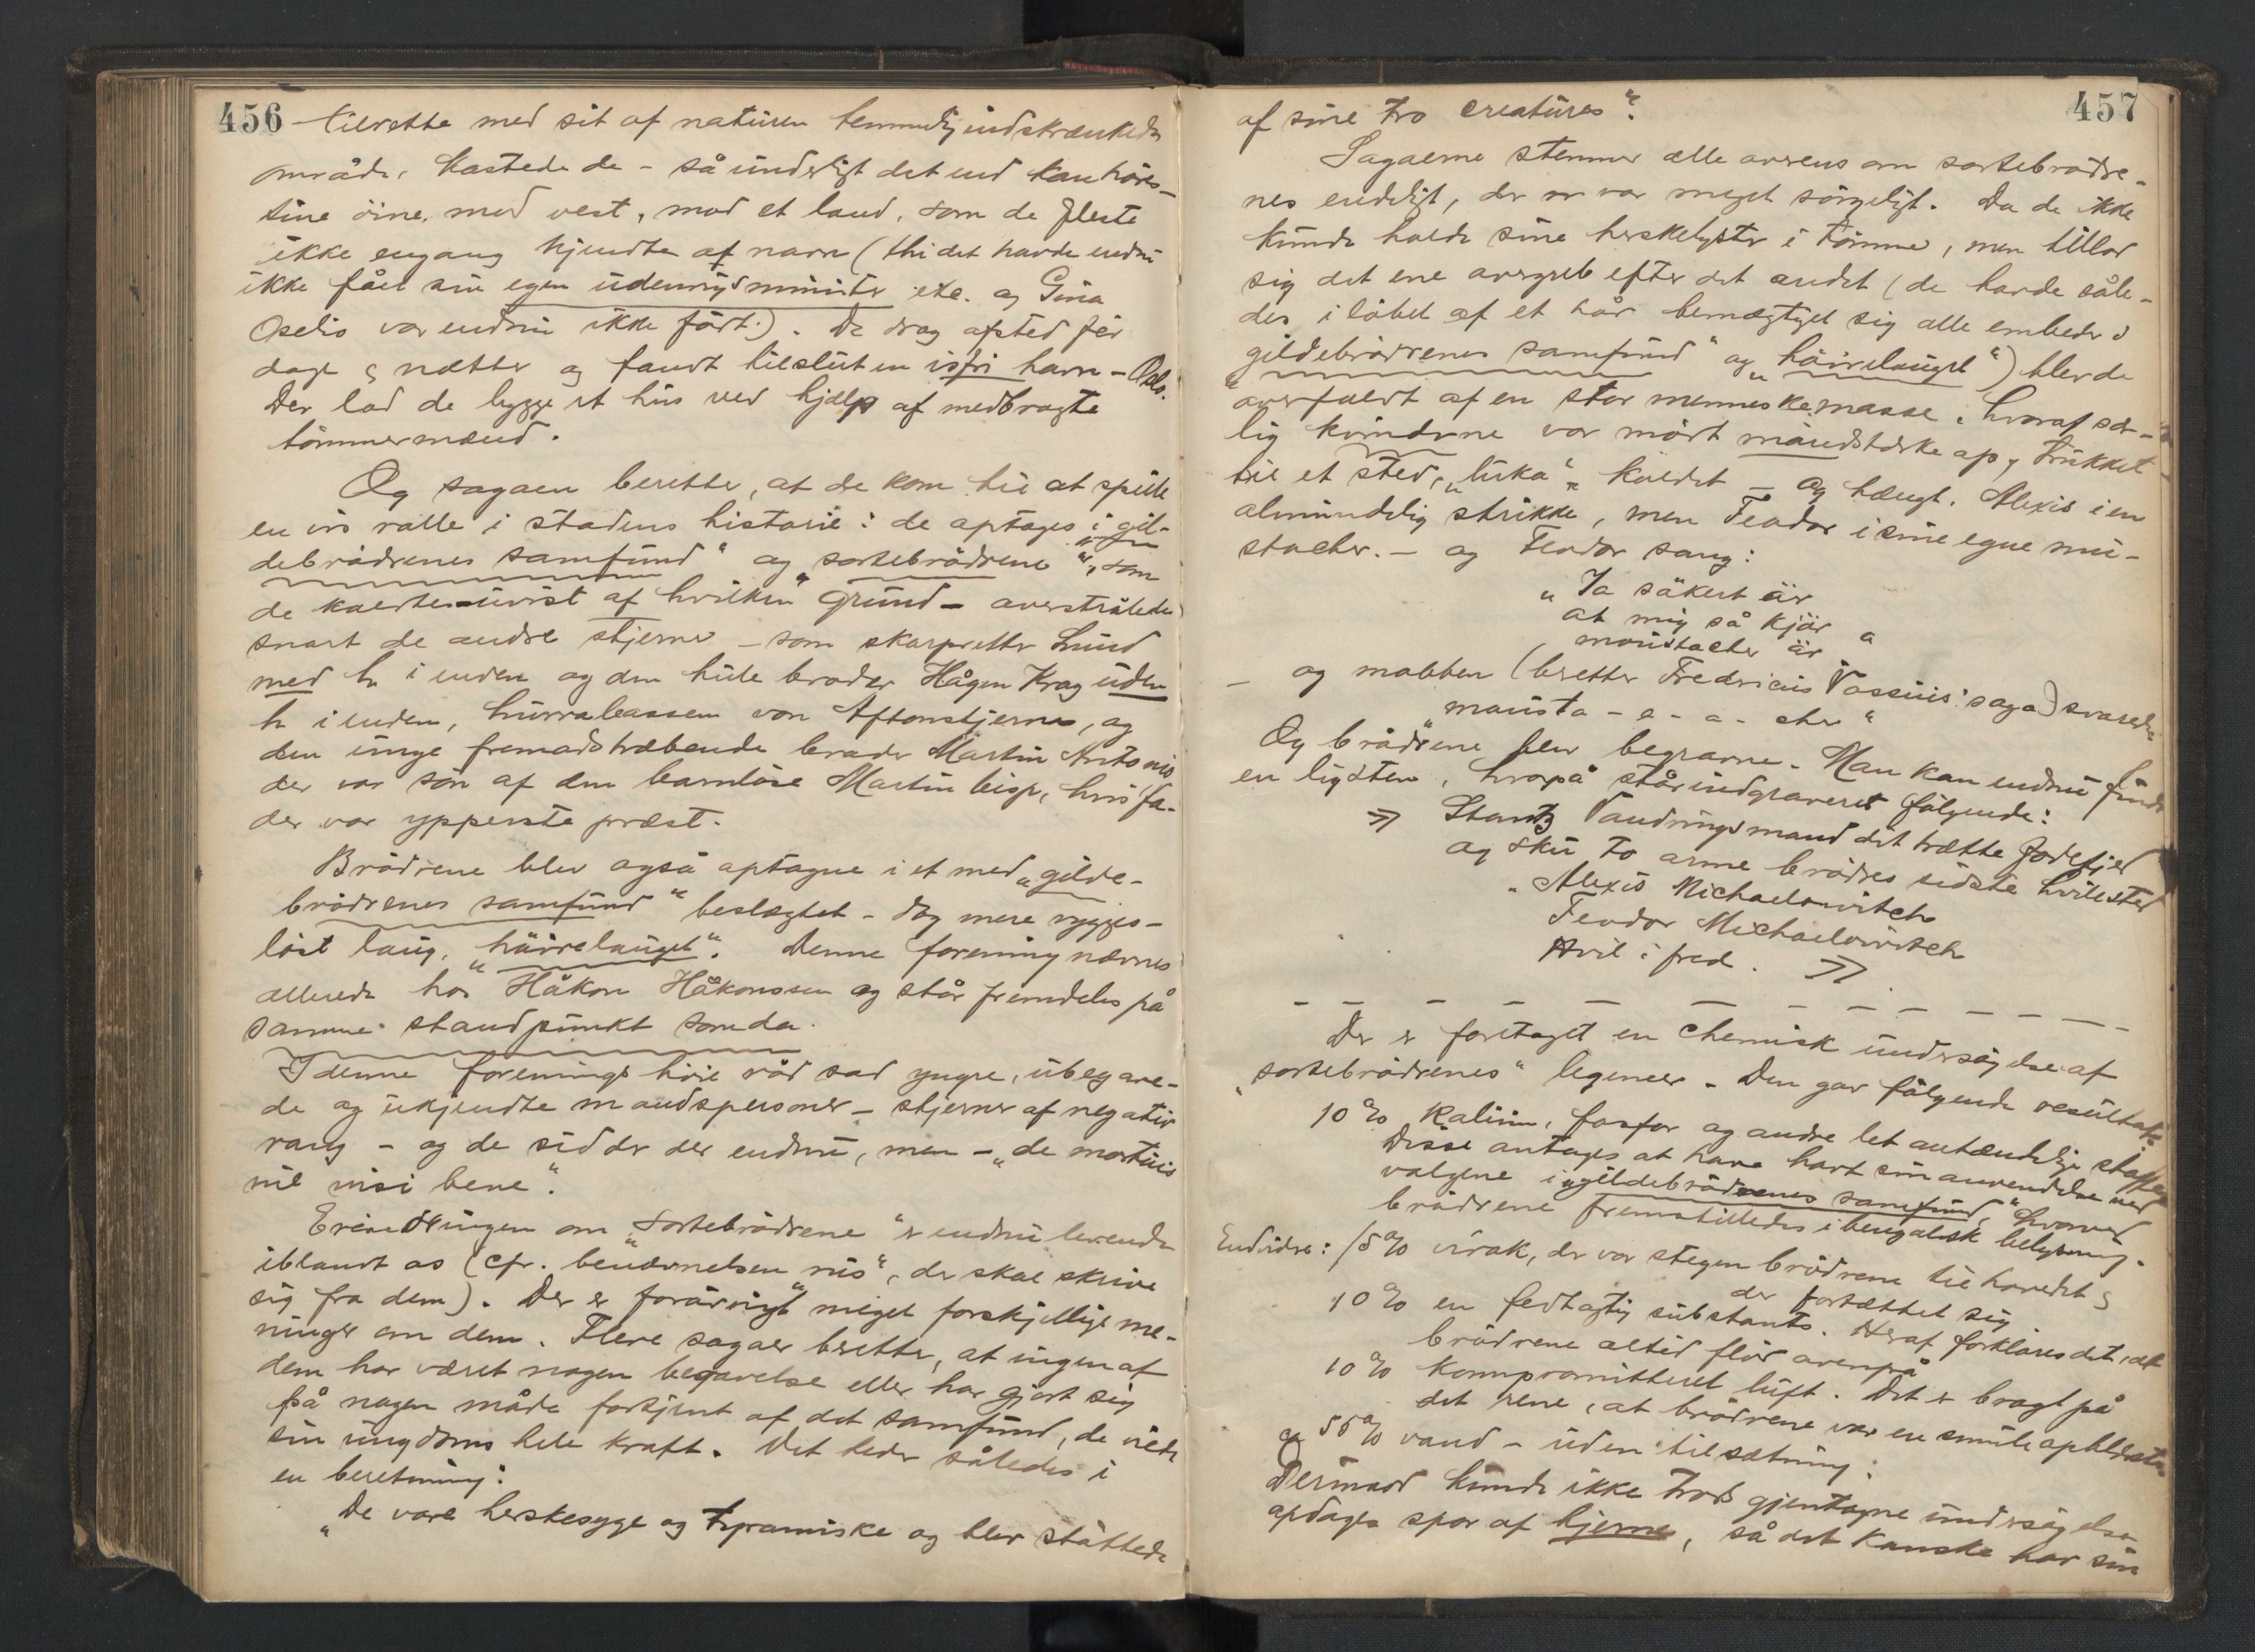 456
tilrette med sit af naturen temmelig indskrænkede
område, kastede de – så underligt det end kan høres –
sine øine mod vest, mod et land, som de fleste
ikke engang kjendte af navn (thi det havde endnu
ikke fået sin egen udenrigsminister etc. og Gina
Oselio var endnu ikke født). De drog afsted fir
dage & nætter og fandt tilslut en isfri havn – Oslo.
Der lod de bygge et hus ved hjælp af medbragte
tømmermænd.
Og sagaen beretter, at de kom til at spille
en vis rolle i stadens historie: de optages i „gil-
debrødrenes samfund“ og „sortebrødrene“, som
de kaldtes uvist af hvilken grund – overstrålede
snart de andre stjerner – som skarpretter Lund
med h i enden og den hule broder Hågen Krag uden
h i enden, hurrabassen von Aftonstjerna, og
den unge fremadstræbende broder Martin Antonio,
der var søn af den barnløse Martin bisp, hvis fa-
der var ypperste præst.
Brødrene blev også optagne i et med „gilde-
brødrenes samfund“ beslægtet – dog mere rygges-
løst laug, „hårrelauget“. Denne forening nævnes
allerede hos Håkon Håkonssen og står fremdeles på
samme standpunkt som da.
I denne forenings høie råd sad yngre, ubegave-
de og ukjendte mandspersoner – stjerner af negativ
rang – og de sidder der endnu, men – „de mortuis
nil nisi bene“.
Erindringen om „sortebrødrene“ er endnu levende
iblandt os (cfr. benævnelsen „rus“, der skal skrive
sig fra dem). Der er forøvrigt meget forskjellige me-
ninger om dem. Flere sagaer beretter, at ingen af
dem har været nogen begavelse eller har gjort sig
på nogen måde fortjent af det samfund, de viede
sin ungdoms hele kraft. Det heder således i
en beretning:
„De vare herskesyge og tyranniske og blev støttede
457
af sine tro creatures“.
Sagaerne stemmer alle overens om sortebrødre-
nes endeligt, der er var meget sørgeligt. Da de ikke
kunde holde sine herskelyster i tømme, men tillod
sig det ene overgreb efter det andet (de havde såle-
des i løbet af et år bemægtiget sig alle embeder i
„gildebrødrenes samfund“ og „hårrelauget“) blev de
overfaldt af en stor menneskemasse, hvoraf sær-
lig kvinderne var mødt mandstærke op, trukket
til et sted, „luka“ kaldet – og hængt. Alexis i en
almindelig strikke, men Feodor i sine egne mu-
stacher. – og Feodor sang:
„Ja säkert är
at mig så kjär
moustacher är“
– og mobben (beretter Fredricus Vossius' saga) svarede
„mousta – a – a – cher“
Og brødrene blev begravne. Man kan endnu finde
en ligsten, hvorpå står indgraveret følgende:
Stantz Vandringsmand dit trætte fodefjed
og sku to arme brødres sidste hvilested
Alexis Michaelowitch
Feodor Michaelowitch
Hvil i fred.
Der er foretaget en chemisk undersøgelse af
„sortebrødrenes“ legemer. Den gav følgende resultat:
10 % Kalium, fosfor og andre let antændelige stoffer
Disse antages at have havt sin anvendelse ved
valgene i „gildebrødrenes samfund“, hvorved
brødrene fremstilledes i bengalisk belysning.
Endvidere: 15 % virak, der var stegen brødrene til hovedet &
der fortættet sig
10 % en fedtagtig substants. Heraf forklares det, at
brødrene altid flød ovenpå
10 % komprimitteret luft. Det er bragt på
det rene, at brødrene var en smule opblæste
og 55 % vand – uden tilsætning.
Derimod kunde ikke trods gjentagne undersøgelser
opdages spor af hjerne, så det kanske har sin